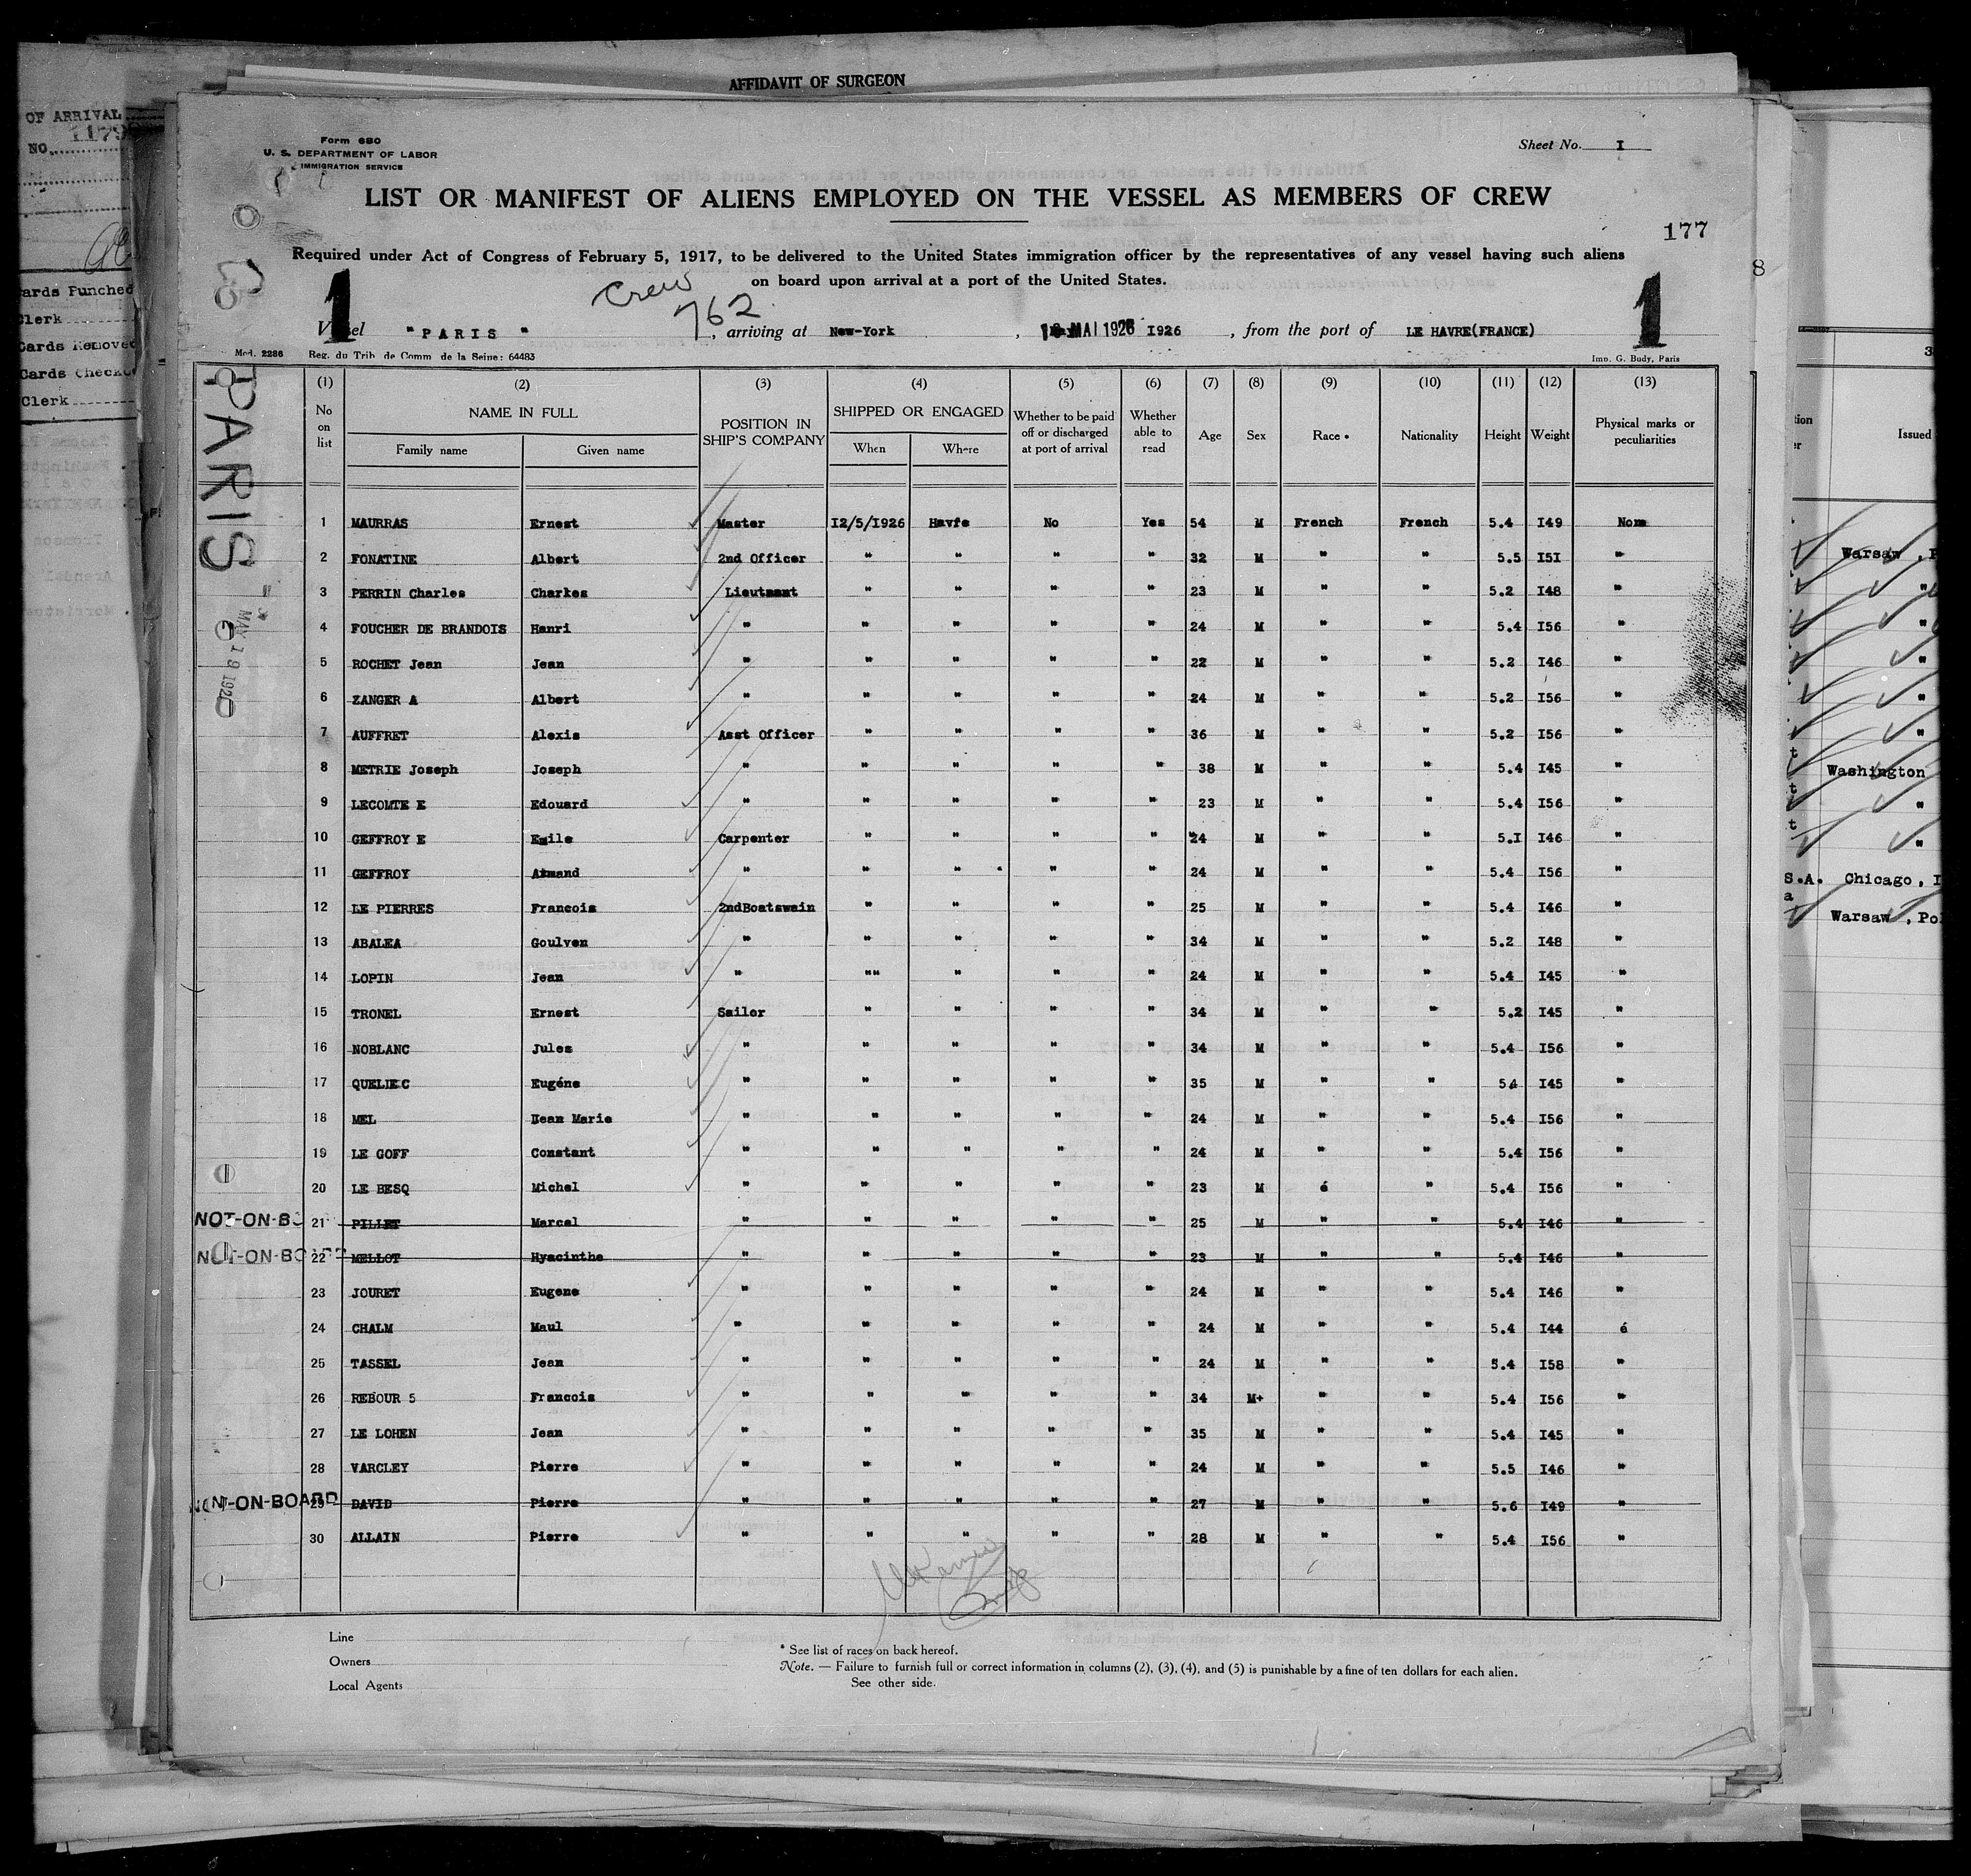 AFFIDAVIT OF SURGEON
OF ARRIVAL
NO.
Cards Punched
Clerk
Cards Removed
Clerk
Form 680
U. S. DEPARTMENT OF LABOR
IMMIGRATION SERVICE
Sheet No. I
LIST OR MANIFEST OF ALIENS EMPLOYED ON THE VESSEL AS MEMBERS OF CREW
177
Required under Act of Congress of February 5, 1917, to be delivered to the United States immigration officer by the representatives of any vessel having such aliens
on board upon arrival at a port of the United States.
Crew
762
1 1
Vessel "PARIS", arriving at New-York, MAI 1926 I926, from the port of LE HAVRE(FRANCE)
Mod. 2286 Reg. du Trib. de Comm. de la Seine: 64483 Imp. G. Budy, Paris
PARIS
MAY 19 192
(1) (2) (3) (4) (5) (6) (7) (8) (9) (10) (11) (12) (13)
No on list NAME IN FULL Family name Given name POSITION IN SHIP'S COMPANY SHIPPED OR ENGAGED When Where Whether to be paid off or discharged at port of arrival Whether able to read Age Sex Race * Nationality Height Weight Physical marks or peculiarities
1 MAURRAS Ernest Master I2/5/I926 Havre No Yes 54 M French French 5.4 I49 None
2 FONATINE Albert 2nd Officer " " " " 32 M " " 5.5 I5I "
3 PERRIN Charles Charles Lieutenant " " " " 23 M " " 5.2 I48 "
4 FOUCHER DE BRANDOIS Henri " " " " " 24 M " " 5.4 I56 "
5 ROCHET Jean Jean " " " " " 22 M " " 5.2 I46 "
6 ZANGER A Albert " " " " " 24 M " " 5.2 I56 "
7 AUFFRET Alexis Asst Officer " " " " 36 M " " 5.2 I56 "
8 METRIE Joseph Joseph " " " " " 38 M " " 5.4 I45 "
9 LECOMTE E Edouard " " " " " 23 M " " 5.4 I56 "
10 GEFFROY E Emile Carpenter " " " " 24 M " " 5.I I46 "
11 GEFFROY Armand " " " " " 24 M " " 5.4 I56 "
12 LE PIERRES Francois 2ndBoatswain " " " " 25 M " " 5.4 I46 "
13 ABALEA Goulven " " " " " 34 M " " 5.2 I48 "
14 LOPIN Jean " "" " " " 24 M " " 5.4 I45 "
15 TRONEL Ernest Sailor " " " " 34 M " " 5.2 I45 "
16 NOBLANC Jules " " " " " 34 M " " 5.4 I56 "
17 QUELIEC Eugéne " " " " " 35 M " " 54 I45 "
18 MEL Jean Marie " " " " " 24 M " " 5.4 I56 "
19 LE GOFF Constant " " " " " 24 M " " 5.4 I56 "
20 LE BESQ Michel " " " " " 23 M é " 5.4 I56 "
NOT-ON-BO 21 PILLET Marcel " " " " " 25 M " " 5.4 I46 "
NOT-ON-BOARD 22 MELLOT Hyacinthe " " " " " 23 M " " 5.4 I46 "
23 JOURET Eugene " " " " " 24 M " " 5.4 I46 "
24 CHALM Maul " " " " " 24 M " " 5.4 I44 é
25 TASSEL Jean " " " " " 24 M " " 5.4 I58 "
26 REBOUR 5 Francois " " " " " 34 M+ " " 5.4 I56 "
27 LE LOHEN Jean " " " " " 35 M " " 5.4 I45 "
28 VARCLEY Pierre " " " " " 24 M " " 5.5 I46 "
NOT-ON-BOARD 29 DAVID Pierre " " " " " 27 M " " 5.6 I49 "
30 ALLAIN Pierre " " " " " 28 M " " 5.4 I56 "
Line
Owners
Local Agents
* See list of races on back hereof.
Note. — Failure to furnish full or correct information in columns (2), (3), (4), and (5) is punishable by a fine of ten dollars for each alien.
See other side.
8
Issued
Warsaw
Washington
S.A. Chicago, I
Warsaw, Pol